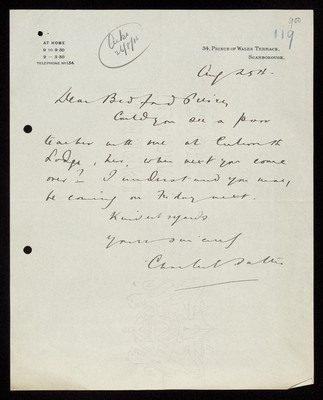 AT HOME
9 TO 9-30
2 — 3-30
TELEPHONE Nº 134
26/8/11
119
34, PRINCE OF WALES TERRACE,
SCARBOROUGH.
Aug 25th.
Dear Bedford Pierce,
Could you see a poor
teacher with me at
Lodge, here, when next you come
over? I understand you may
be coming on Friday next.
Kindest regards
Yours sincerely
Charles